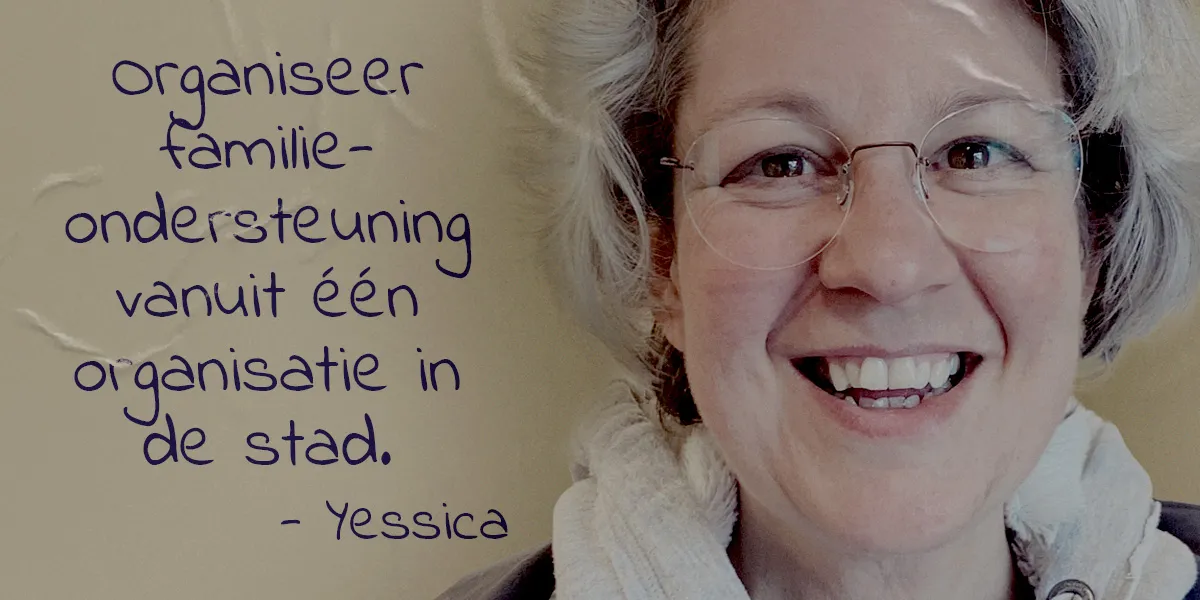 organiseer
familie-
ondersteuning
vanuit één
organisatie in
de stad.
- Yessica